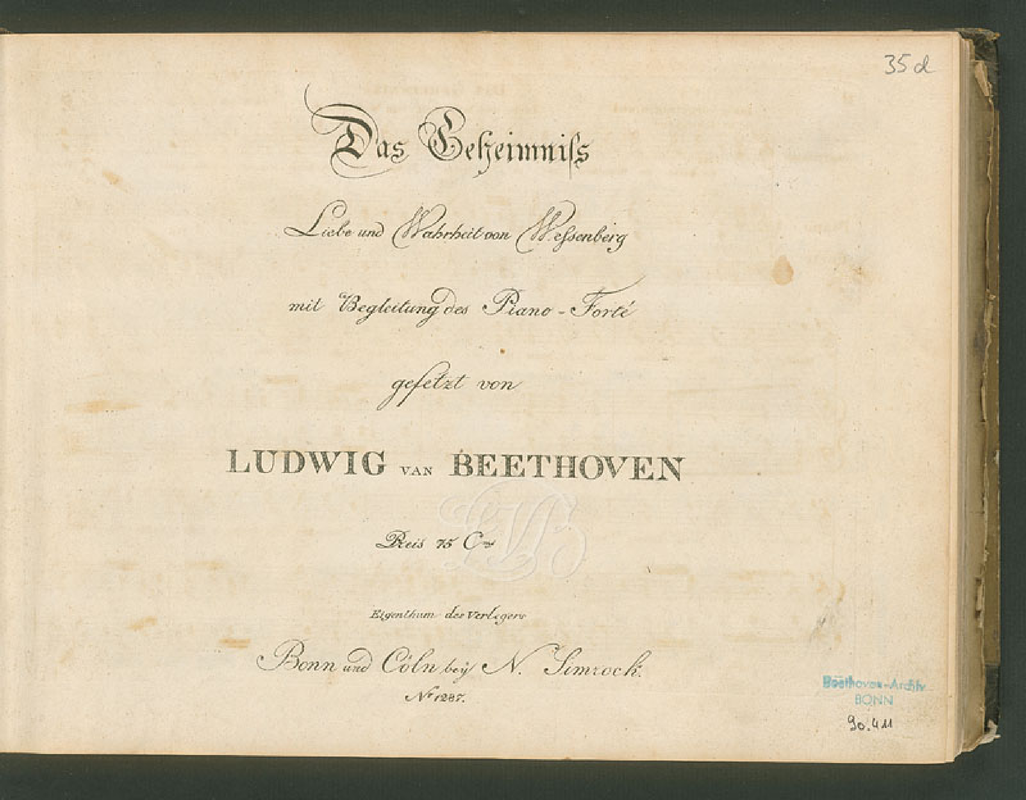 35 d
Das Geheimniſs
Liebe und Wahrheit von Weſsenberg
mit Begleitung des Piano-Forté
geſetzt von
LUDWIG VAN BEETHOVEN
LVB
Preis 75 Cms
Eigenthum des Verlegers
Bonn und Cöln beÿ N. Simrock.
No 1287.
Beethoven-Archiv
BONN